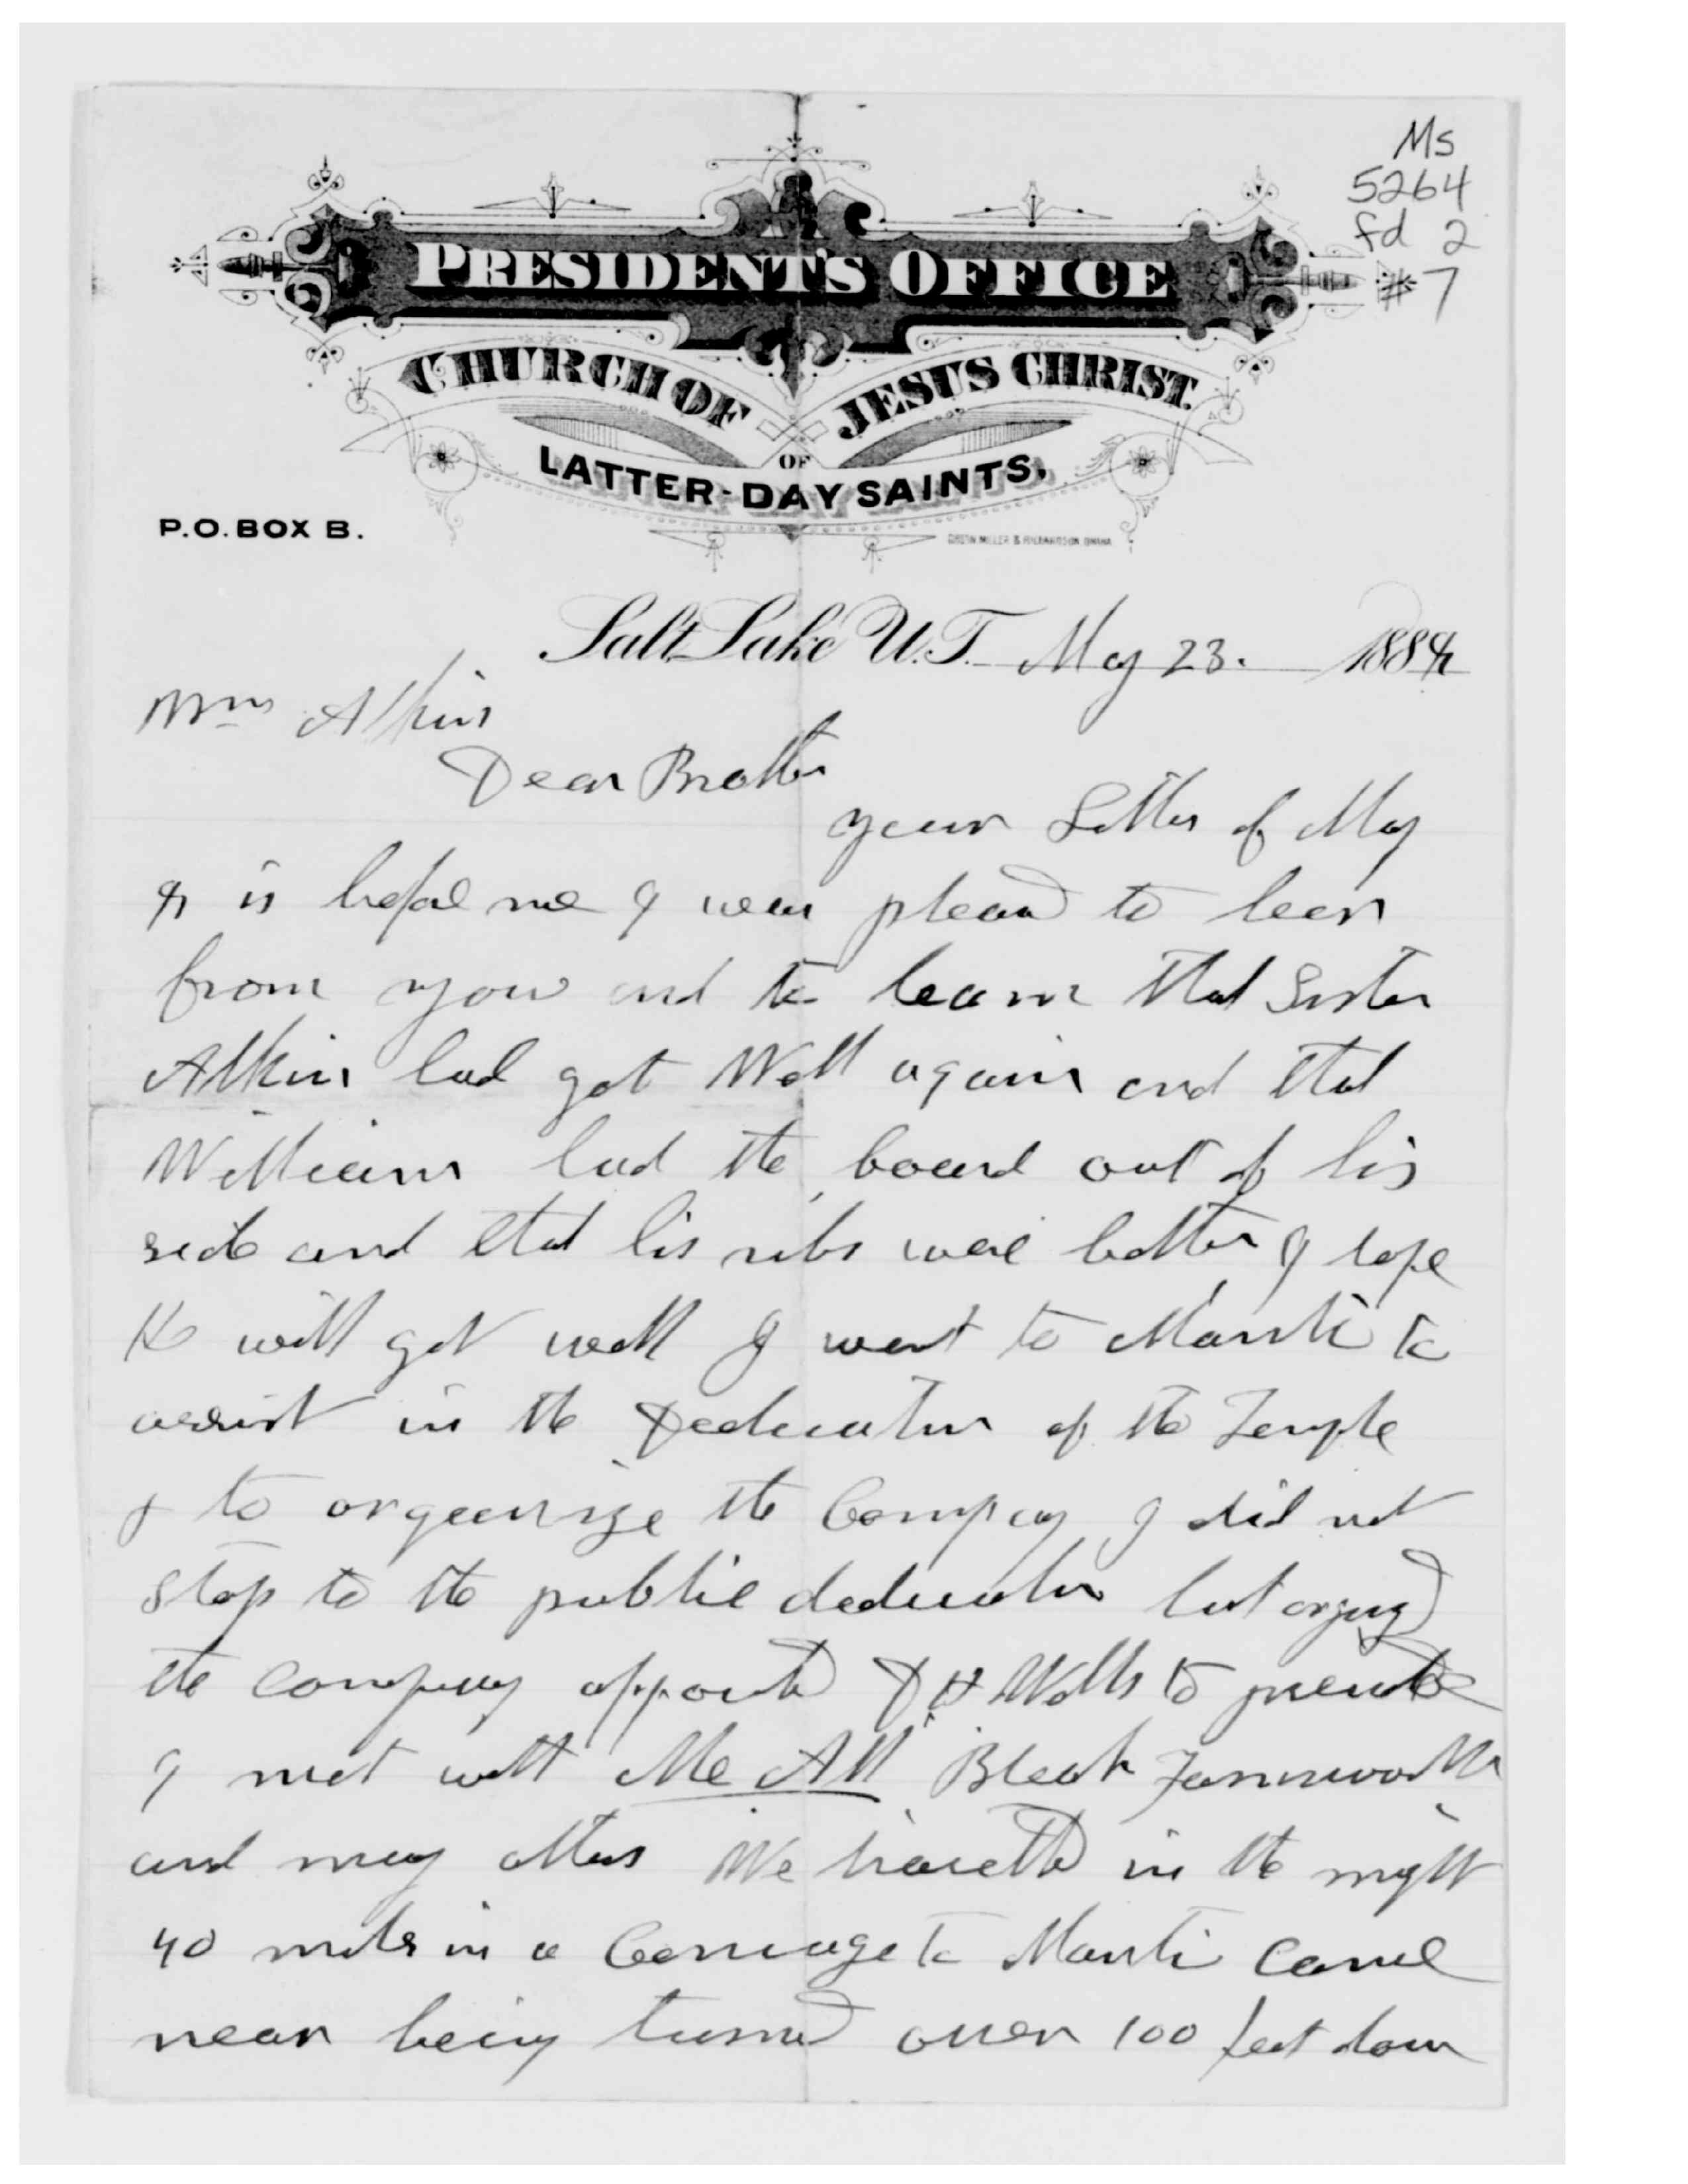 Ms
5264
fd 2
#7
PRESIDENT'S OFFICE
CHURCH OF JESUS CHRIST
OF
LATTER-DAY SAINTS.
P.O. BOX B.
Salt Lake U.T. May 23. 1888
Wm Atkin
Dear Brother
your Letter of May
is before me I was pleasd to hear
from you and to learn that Sister
Atkin had got Well again and that
William had the board out of his
side and that his ribs were better I hope
He will get well I went to Manti to
assist in the Dedication of the Temple
& to organize the Company I did not
stop to the public dedication but organizd
the company appointed D H Wells to preside
I met with McAll Bleak Farnsworth
and many others We travelled in the night
40 miles in a Carriage to Manti Came
near being turned over 100 feet down